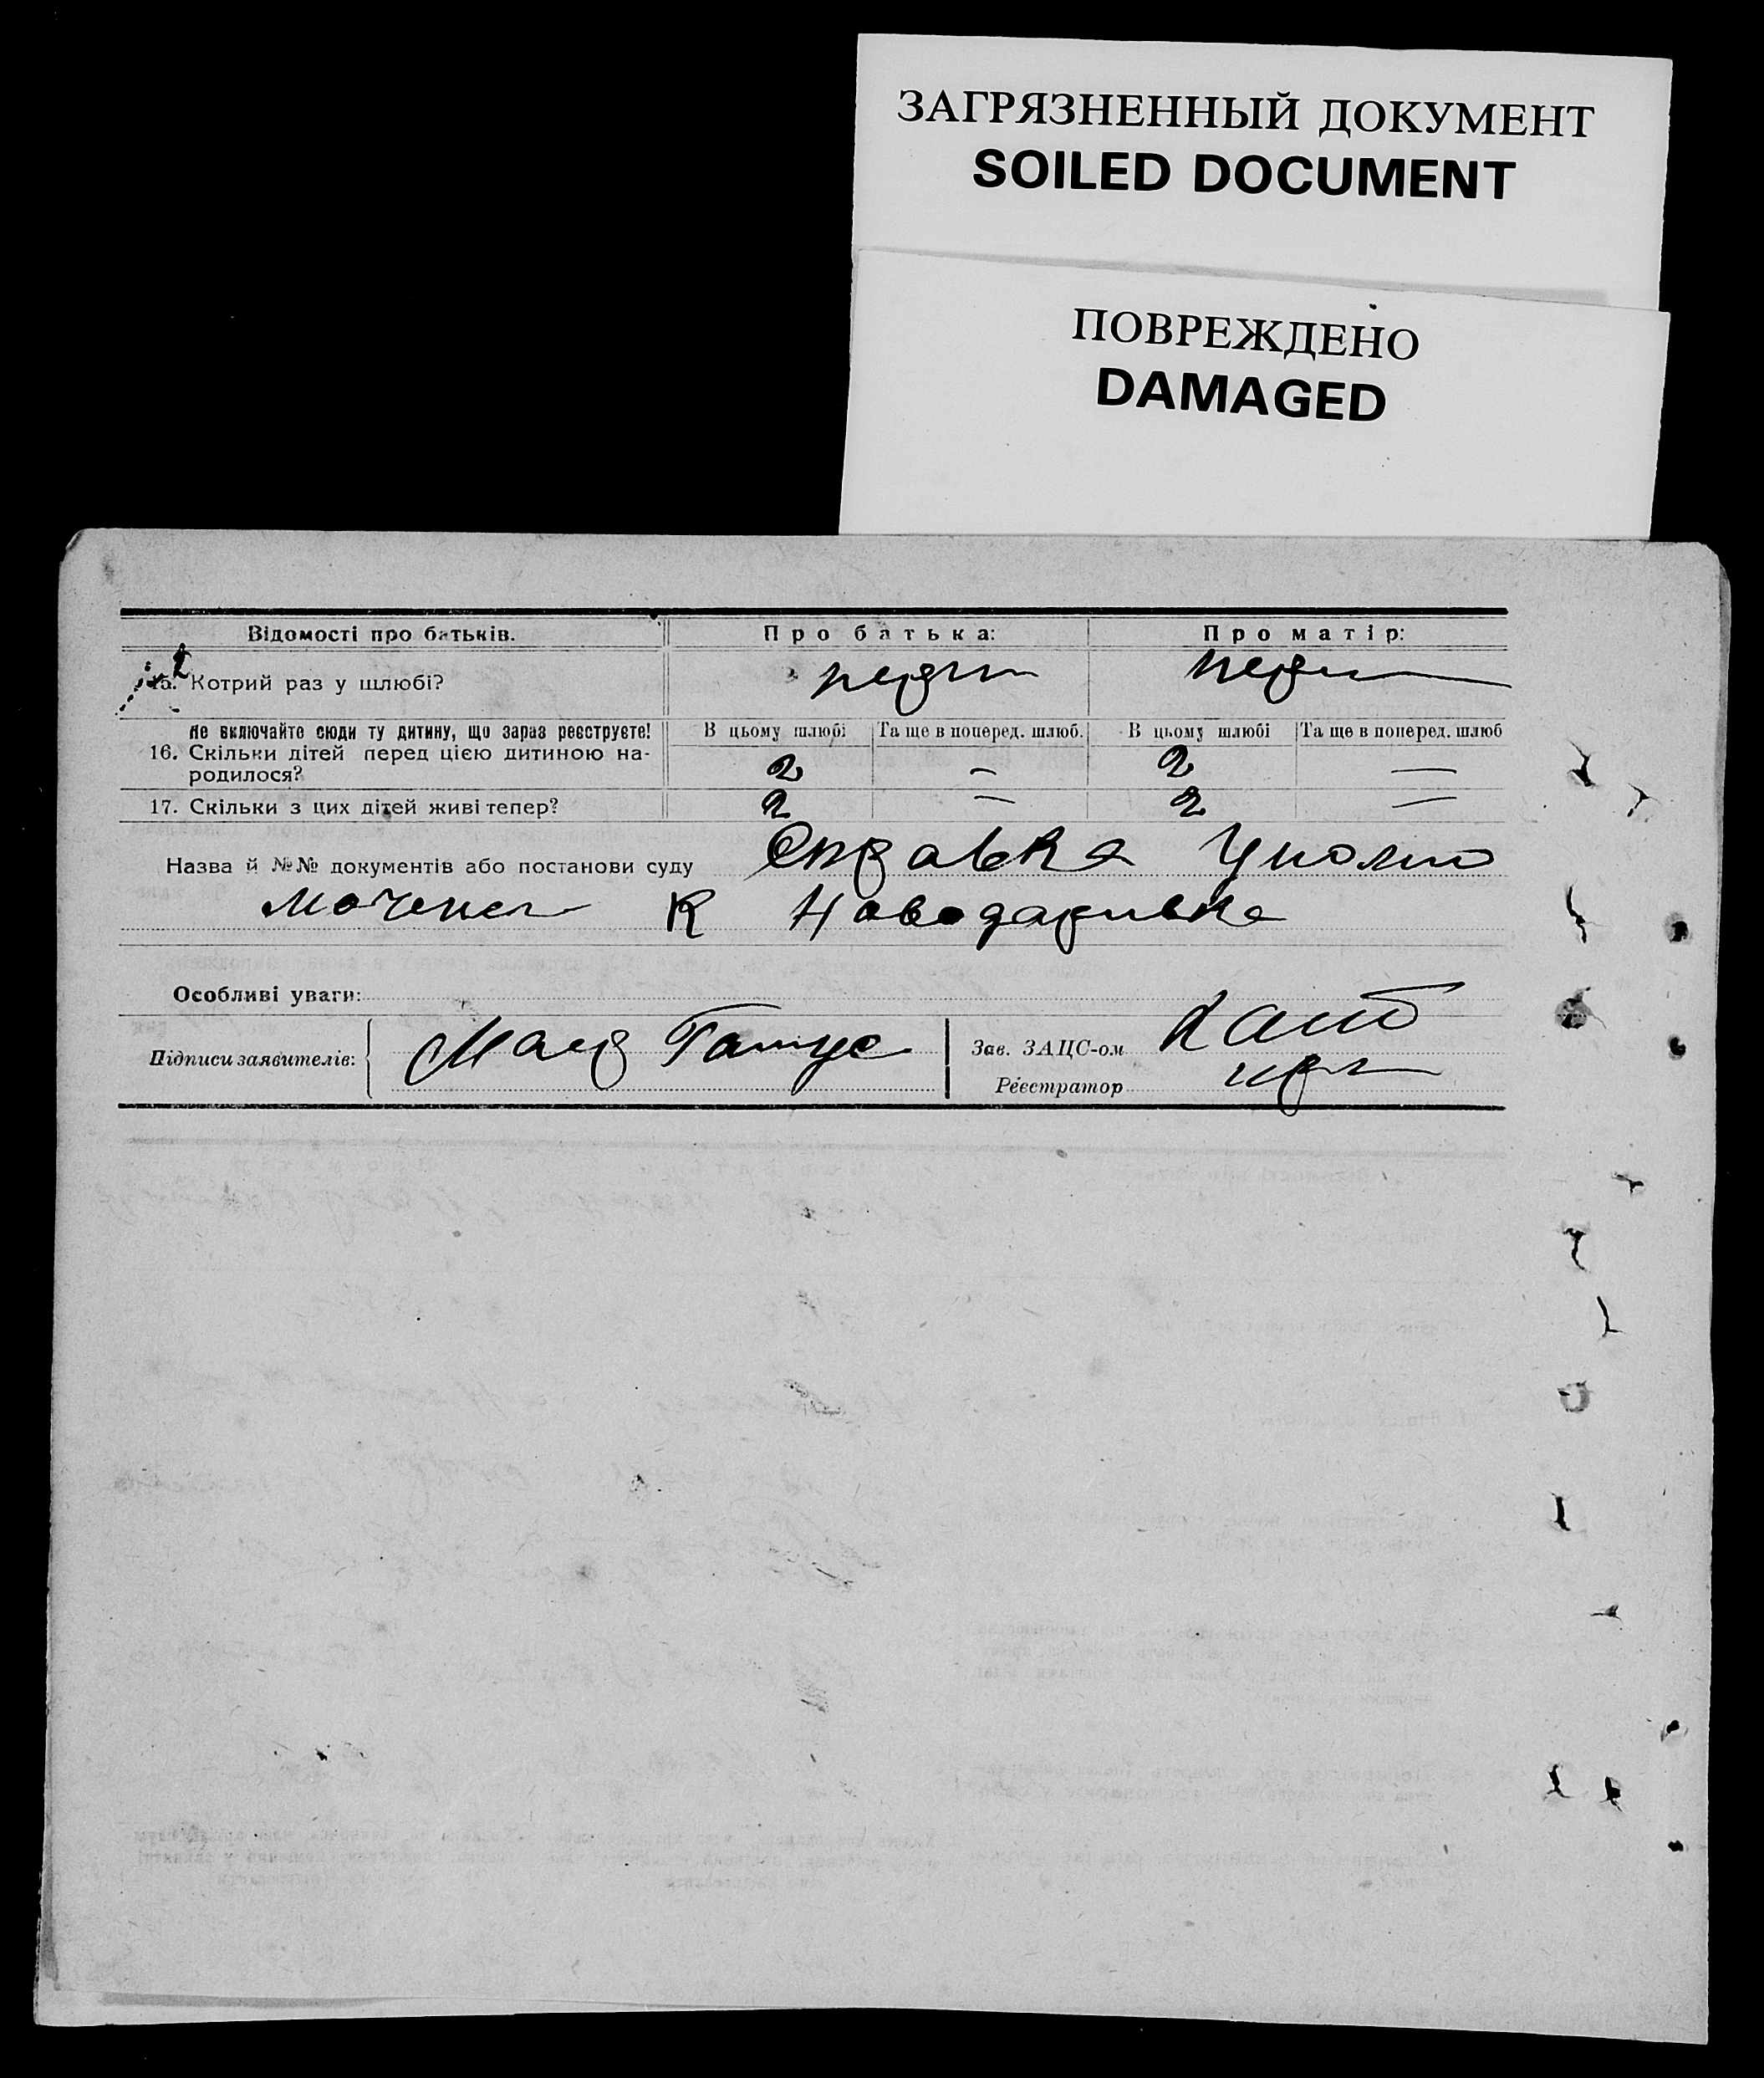 ЗАГРЯЗНЕННЫЙ ДОКУМЕНТ
SOILED DOCUMENT
ПОВРЕЖДЕНО
DAMAGED
Відомості про батьків. Про батька: Про матір:
15. Котрий раз у шлюбі?
Не включайте сюди ту дитину, що зараз реєструєте! В цьому шлюбі Та ще в поперед. шлюб. В цьому шлюбі Та ще в поперед. шлюб
16. Скільки дітей перед цією дитиною на-
родилося? 2 — 2 —
17. Скільки з цих дітей живі тепер? 2 — 2 —
Назва й №№ документів або постанови суду Справка Уполно
моченого К Новодаривка
Особливі уваги:
Підписи заявителів:
Зав. ЗАЦС-ом
Реєстратор